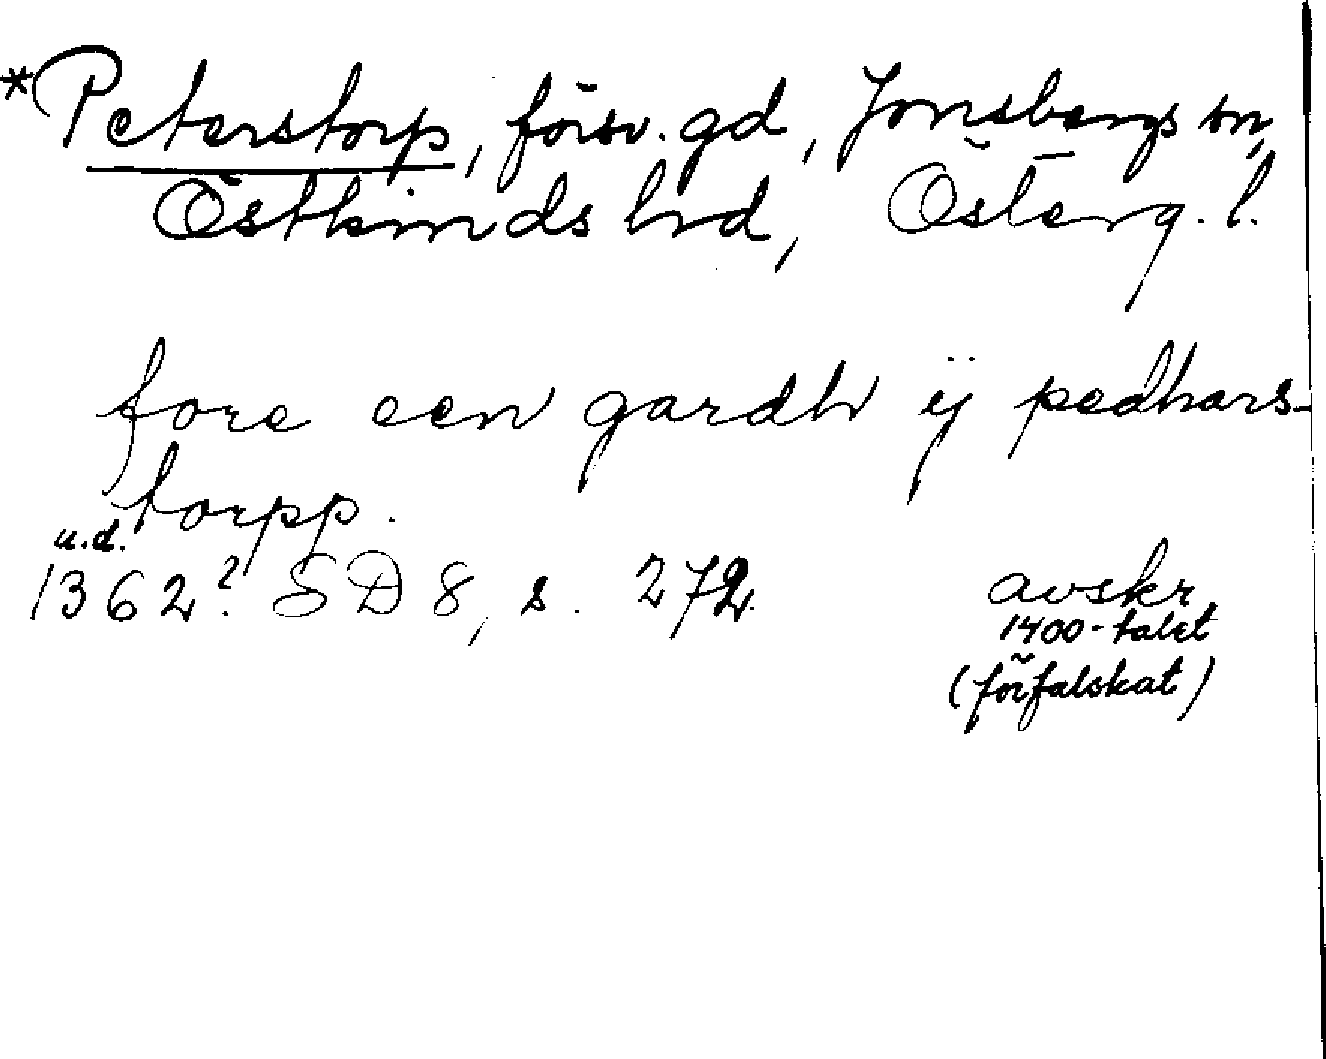 *Peterstorp, försv. gd, Jonsbergs sn,
Östkinds hrd, Österg. l.
fore een gardh ÿ pedhars-
torpp.
u.d.
1362? SD 8, s. 272. avskr.
1400-talet
(förfalskat)